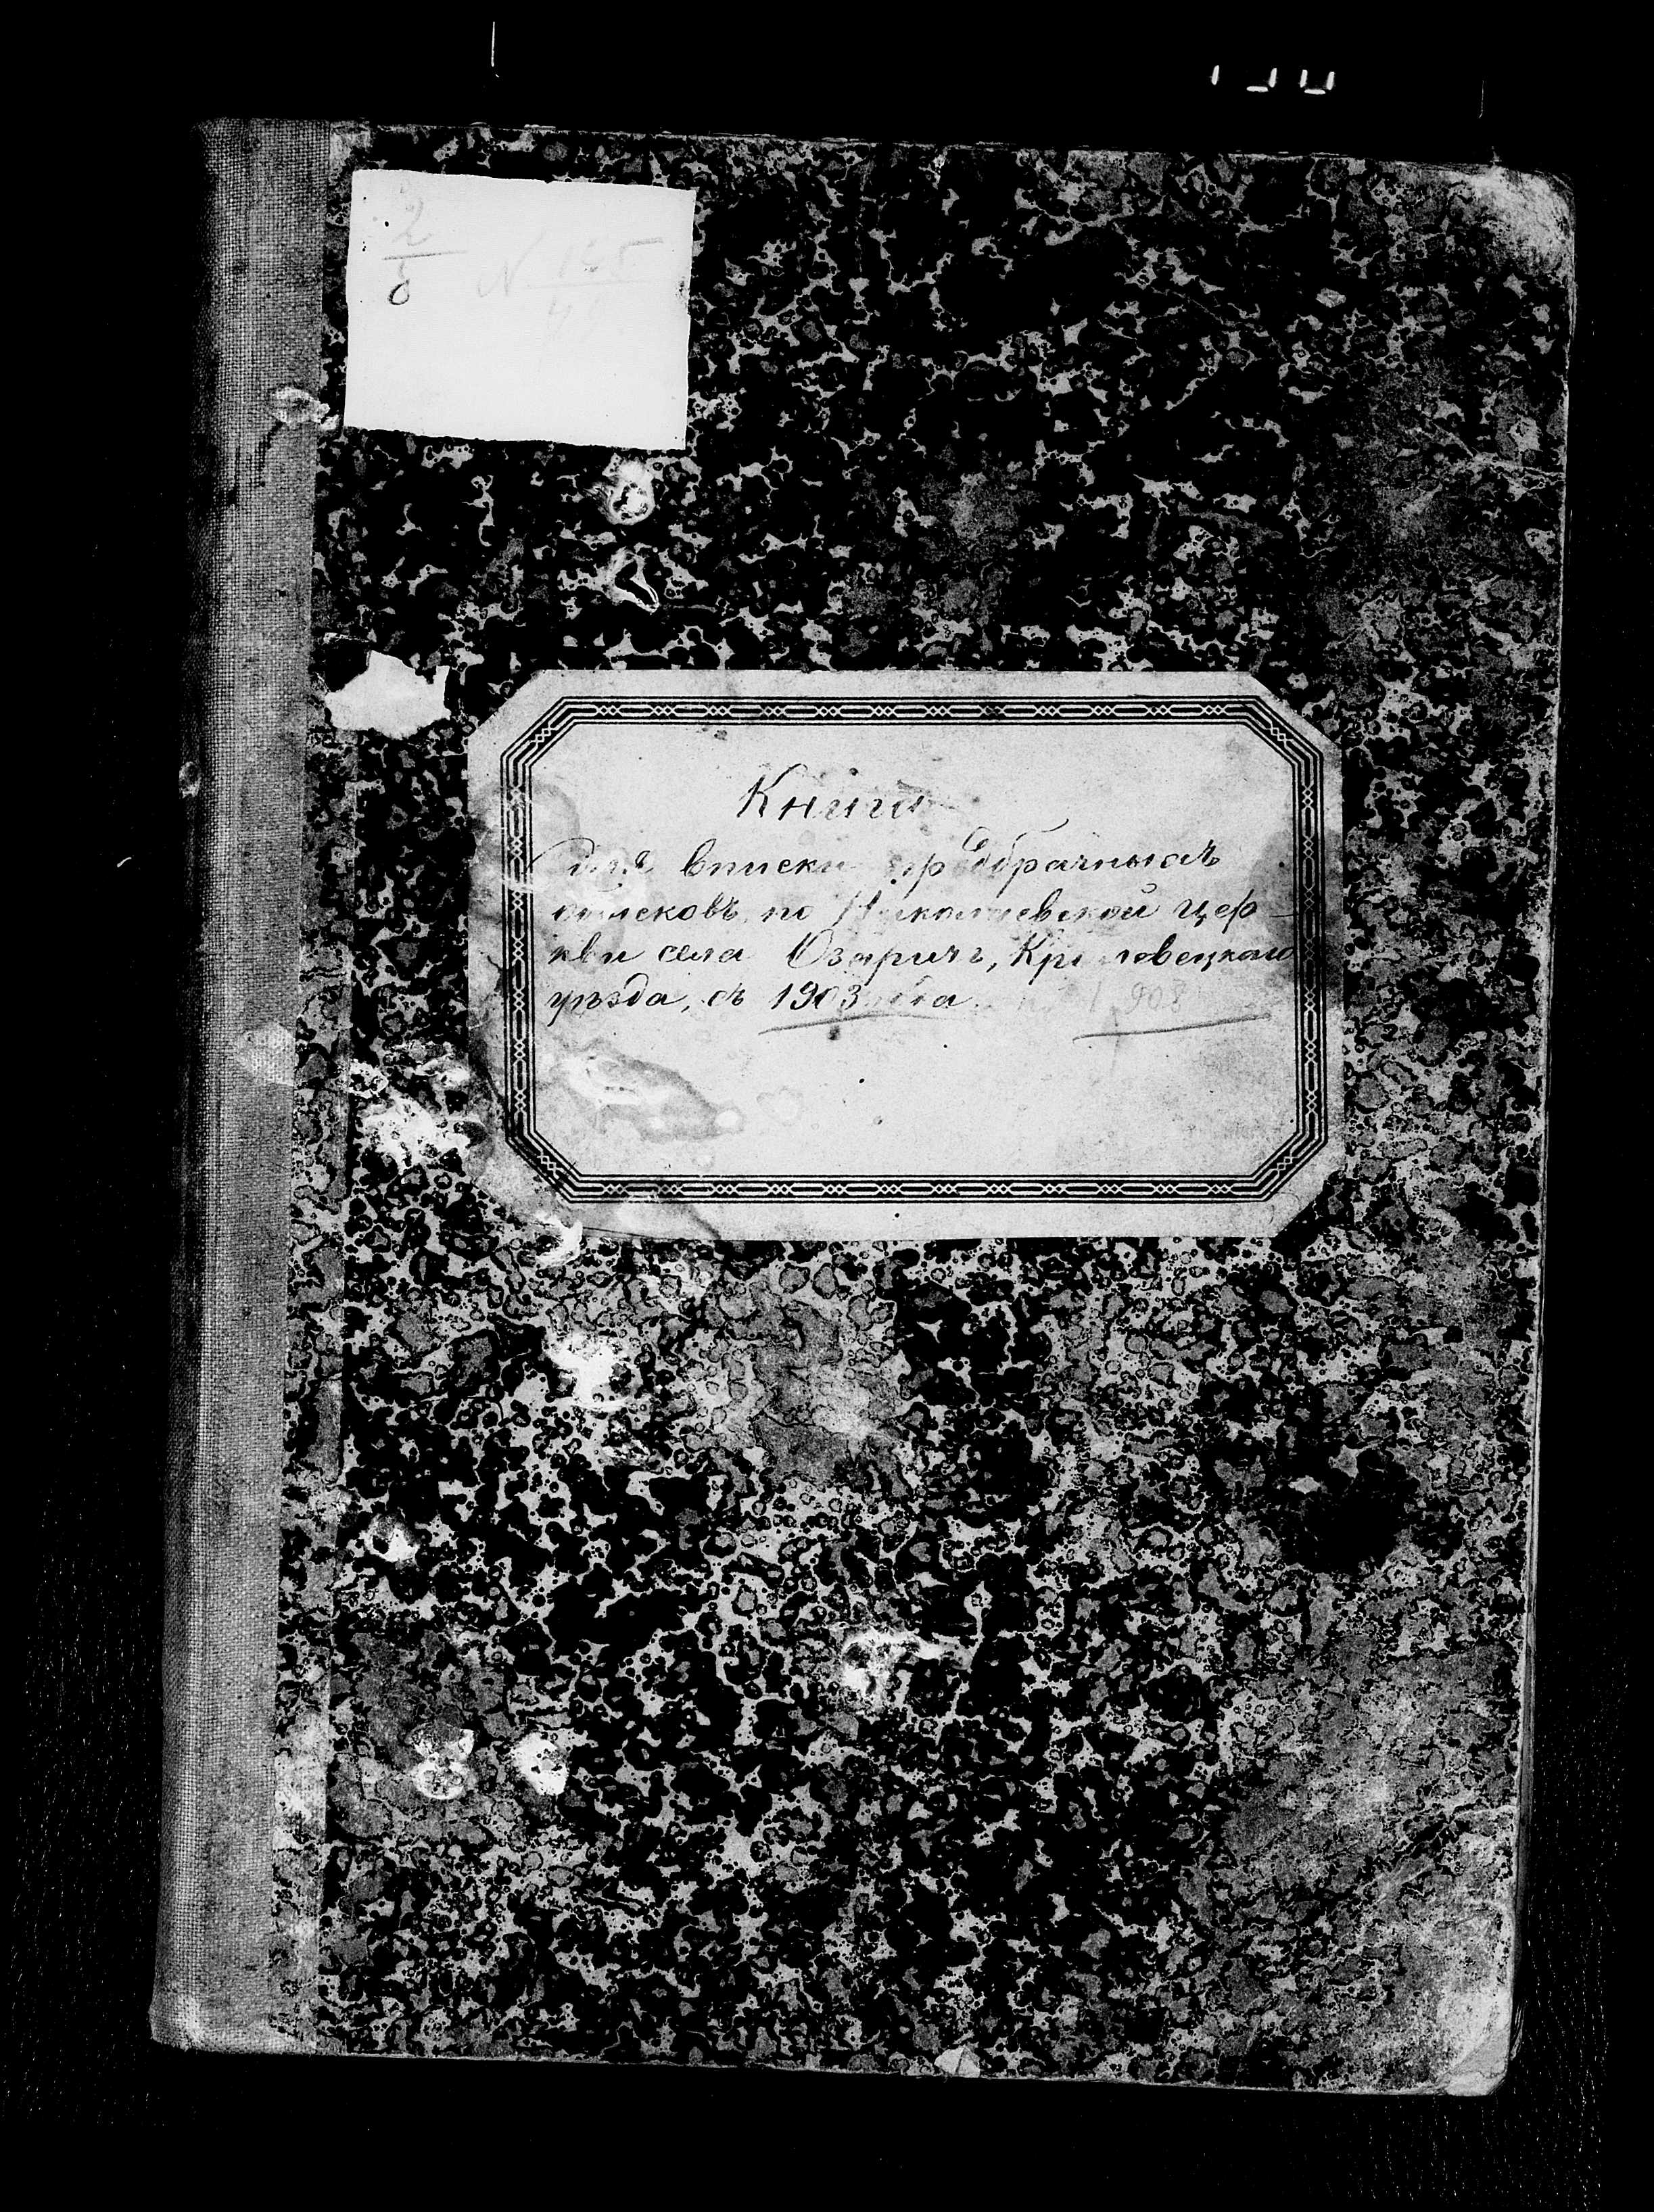 2
5
№
Книга
для вписки предбрачныхъ
обысковъ по Николаевской цер-
кви села Озаричъ, Кролевецкаго
уѣзда, съ 1903 года 1908